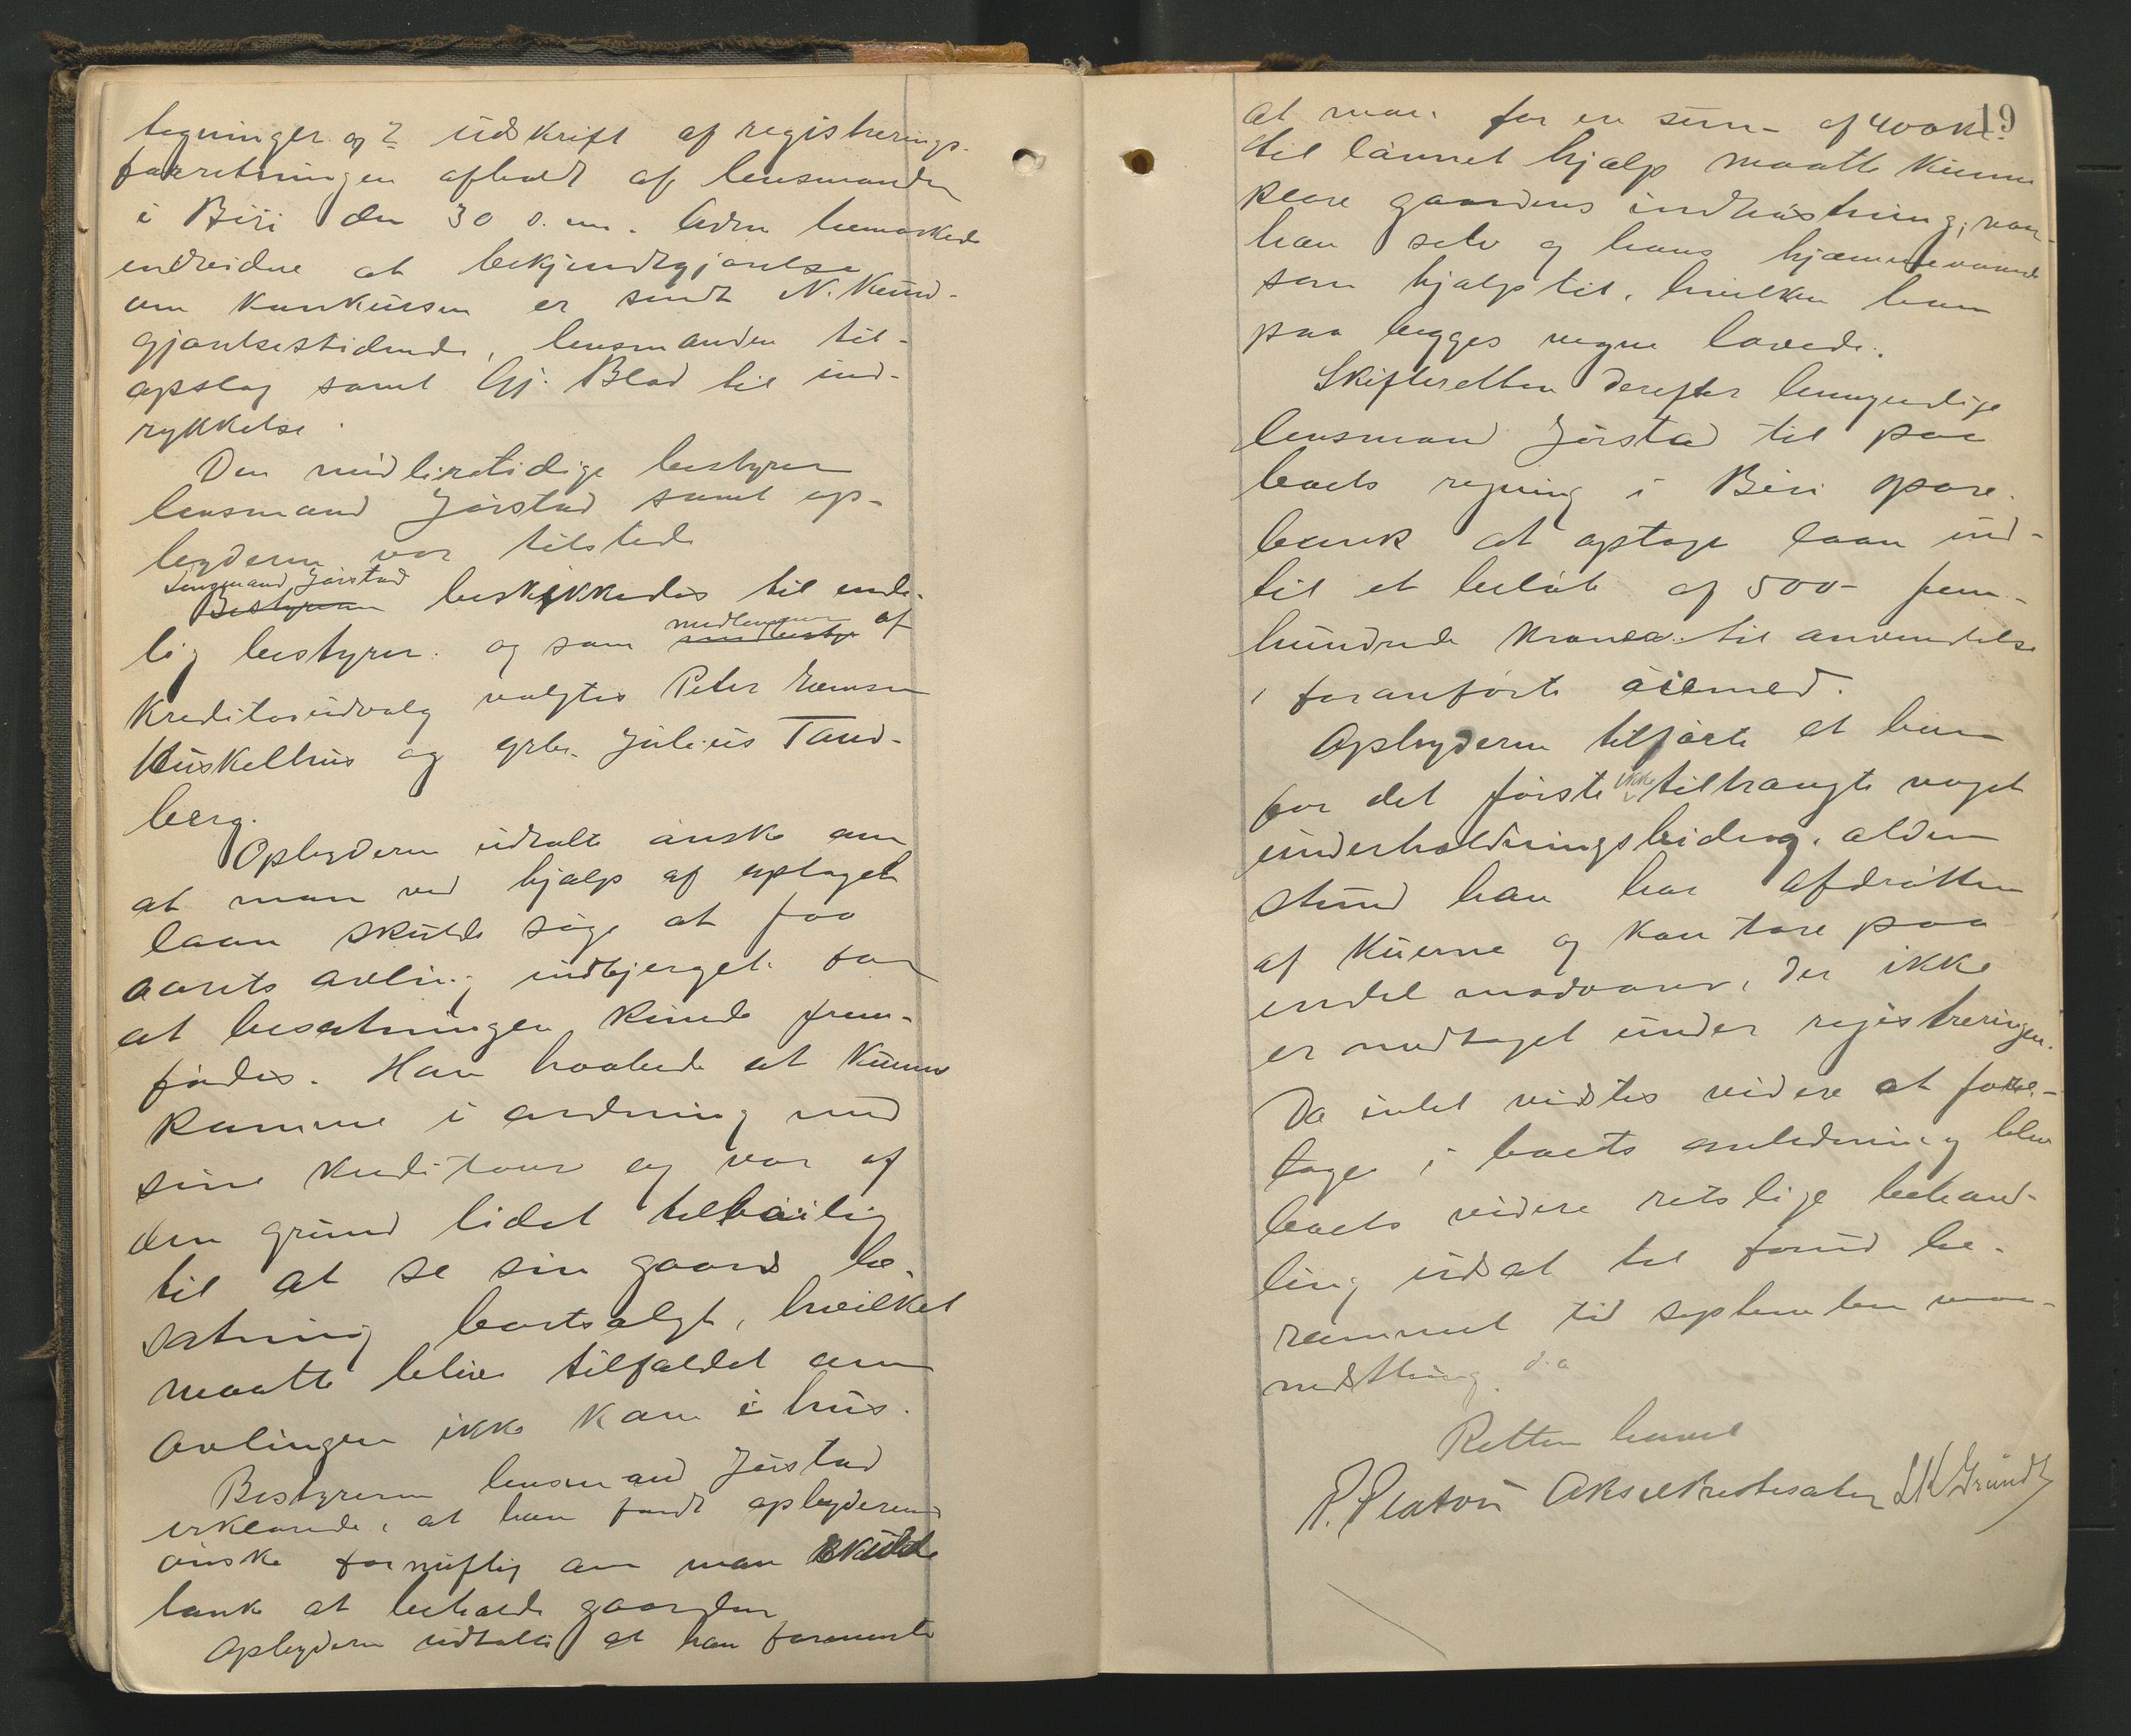 tegninger og 2 udskrift af registrerings-
forretningen afholdt af lensmanden
i Biri den 30 v. m. Aden bemærkede
at bekjendtgjørelse
om konkursen er sendt N. Kund-
gjørelsestidende, lensmanden til
opslag samt Gj. Blad til ind-
rykkelse.
Den midlertidige bestyrer
lensmand Jørstad samt op-
byderen var tilstede
Lensmand Jørstad
Bestyreren beskikkedes til ende-
lig bestyrer og som medlemmer af
kreditorudvalg valgtes Peter Jemsen
Kuskelhus og grbr. Julius Tand-
berg.
Opbyderen udtalte ønske om
at man ved hjælp af optaget
laan skulde søge at faa
aarets avling indbjerget for
at besætningen kunde frem-
fødes. Han haabede at kunne
komme i ordning med
sine kreditorer og var af
den grund lidet tilbøielig
til at se sin gaards be-
sætning bortsolgt, hvilket
maatte blive tilfældet om
avlingen ikke kom i hus.
Bestyreren lensmand Jørstad
erklærede, at han fandt opbyderens
ønske fornuftig om man skulde
tænke at beholde gaarden
Opbyderen udtalte at han formente
19
at man for en sum af 400 kr.
til lønnet hjælp maatte kunne
klare gaardens indhøstning, naar
han selv og hans hjemmeværende
søn hjalp til, hvilken han
paa begges vegne lovede.
Skifteretten derefter bemyndige
lensmand Jørstad til paa
boets regning i Biri spare-
bank at optage laan ind-
til et beløb af 500 fem-
hundrede kroner til anvendelse
i foranførte øiemed.
Opbyderen tilførte at han
for det første ikke tiltrængte noget
underholdningsbidrag, alden-
stund han har afdrotten
af kuerne og kan tære paa
endel madvarer, der ikke
er medtaget under registreringen.
Da intet vidstes videre at fore-
tage i boets anledning blev
boets videre retslige behand-
ling udsat til forud be-
rammet tid september maa-
nedsthing d.a
Retten hævet
P. Platou Aksel Brotesater L K Grundt